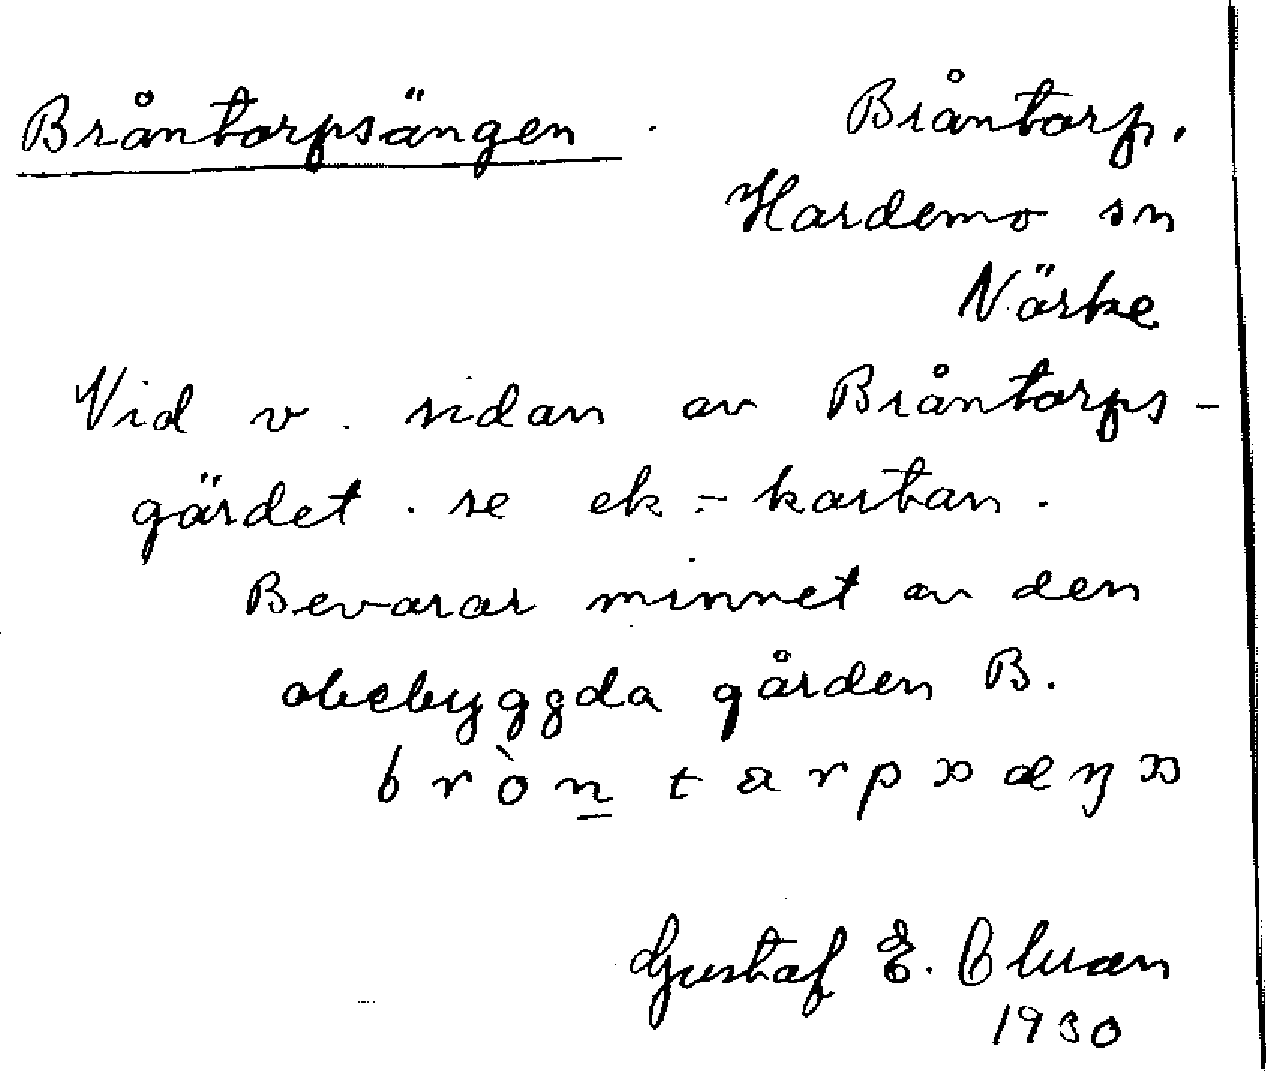 Bråntorpsängen. Bråntorp.
Hardemo sn
Närke
Vid v. sidan av Bråntorps-
gärdet. se ek.-kartan.
Bevarar minnet av den
obebyggda gården B.
Gustaf E.
1930